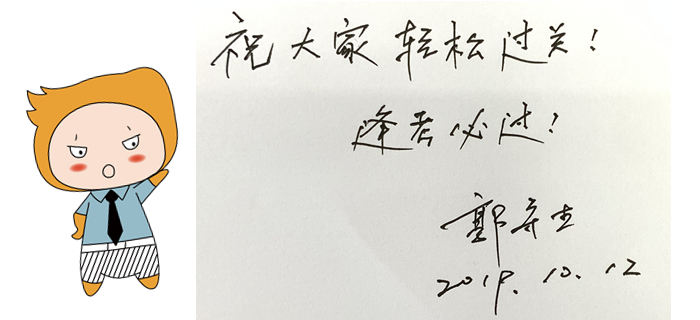 祝大家轻松过关！
逢考必过！
郭守杰
2019.10.12